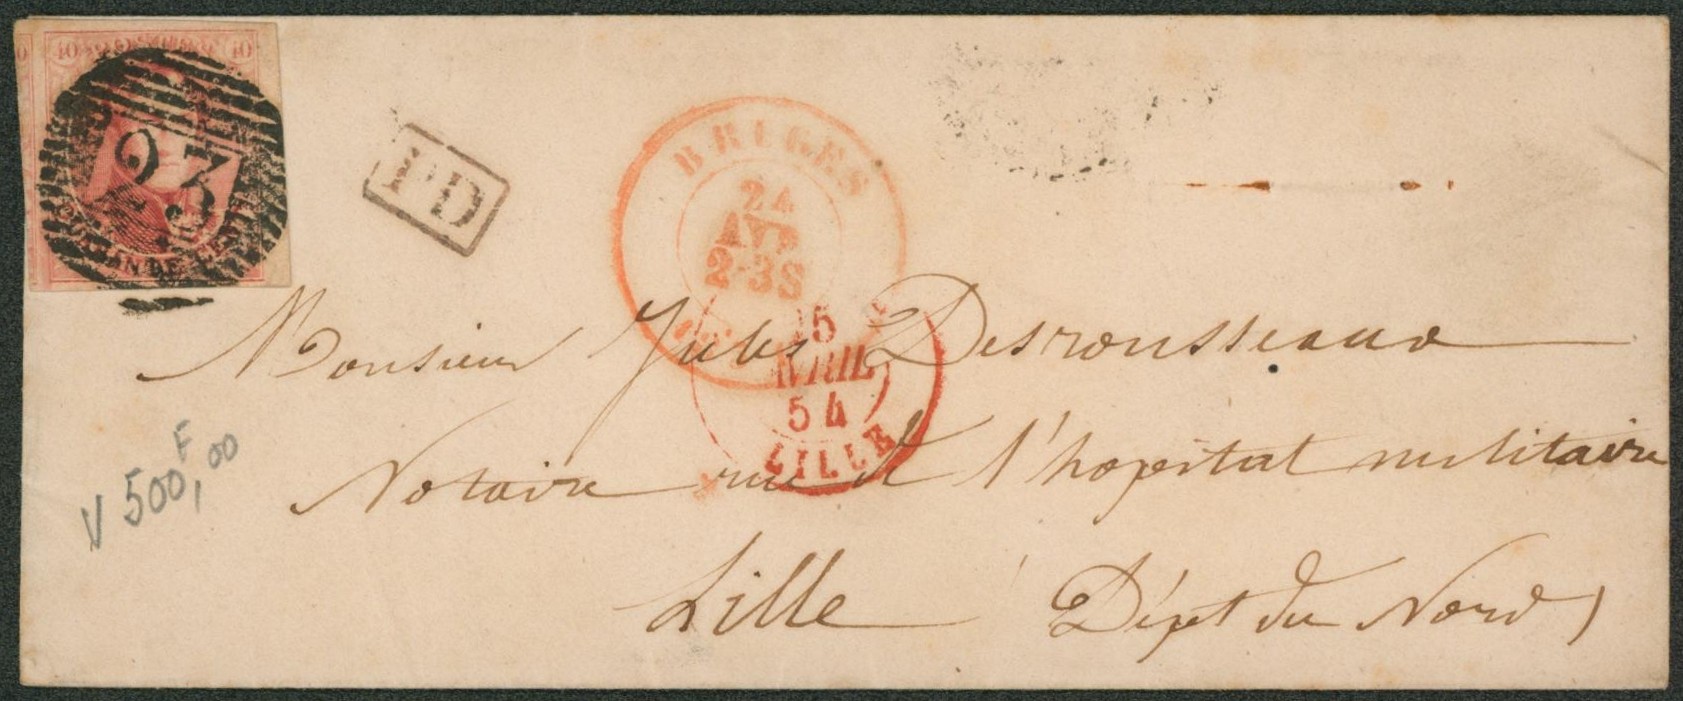 40 40
23
PD
BRUGES
24
AVR
2-3S
AVRIL
54
LILLE
Monsieur Jules Desrousseaux
Notaire rue de l'hopital militaire
Lille (Dépt du Nord)
V 500F,00